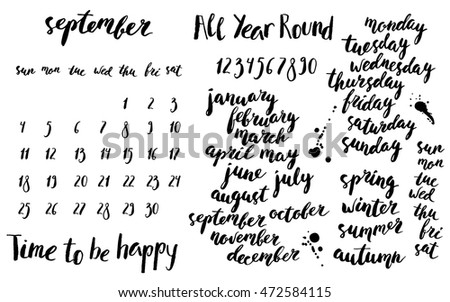 september
sun mon tue wed thu fri sat
1 2 3
4 5 6 7 8 9 10
11 12 13 14 15 16 17
18 19 20 21 22 23 24
25 26 27 28 29 30
Time to be happy
All Year Round
1234567890
january
february
march
april may
june july
august
september october
november
december
monday
tuesday
wednesday
thursday
friday
saturday
sunday
spring
winter
summer
autumn
sun
mon
tue
wed
thu
fri
sat
shutterstock
IMAGE ID: 472584115
www.shutterstock.com